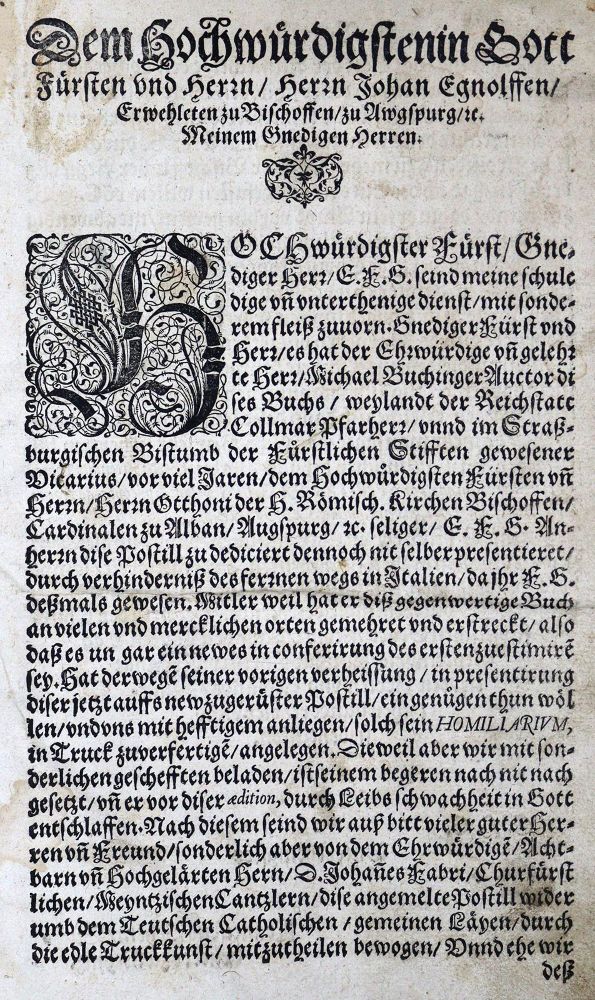 Dem Hochwürdigsten in Gott
Fürsten vnd Herrn/ Herrn Johan Egnolffen/
Erwehleten zu Bischoffen/ zu Awgspurg/ ꝛc.
Meinem Gnedigen Herren.
HOCHwürdigster Fürst/ Gne⸗
diger Herr/ E. F. G. seind meine schuld
dige vñ vnterthenige dienst/ mit sonde⸗
rem fleiß zuuorn. Gnediger Fürst vnd
Herr/ es hat der Ehrwürdige vñ gelehr
te Herr/ Michael Buchinger Auctor di
ses Buchs / weylandt der Reichstatt
Collmar Pfarherr/ vnnd im Straß⸗
burgischen Bistumb der Fürstlichen Stifften gewesener
Vicarius/ vor viel Jaren/ dem Hochwürdigsten Fürsten vñ
Herrn/ Herrn Otthoni der H. Römisch. Kirchen Bischoffen/
Cardinalen zu Alban/ Augspurg/ ꝛc. seliger/ E. F. G. An⸗
herrn dise Postill zu dediciert dennoch nit selber presentieret/
durch verhinderniß des ferrnen wegs in Italien/ da jhr F. G.
deßmals gewesen. Mitler weil hat er diß gegenwertige Buch
an vielen vnd mercklichen orten gemehret vnd erstreckt/ also
daß es un gar ein newes in conferirung des ersten zuestimirẽ
sey. Hat derwegẽ seiner vorigen verheissung / in presentirung
diser jetzt auffs new zugerüster Postill/ ein genügen thun wöl
len/ vnd vns mit hefftigem anliegen/ solch sein HOMILIARIVM,
in Truck zuverfertigẽ/ angelegen. Dieweil aber wir mit son⸗
derlichen geschefften beladen/ ist seinem begeren nach nit nach
gesetzt/ vñ er vor diser ædition, durch Leibs schwachheit in Gott
entschlaffen. Nach diesem seind wir auß bitt vieler guter Her⸗
ren vñ Freund/ sonderlich aber von dem Ehrwürdigẽ/ Acht⸗
barn vñ Hochgelärten Hern/ D. Johañes Fabri/ Churfürst
lichen/ Meyntzischen Cantzlern/ dise angemelte Postill wider
umb dem Teutschen Catholischen / gemeinen Läyen/ durch
die edle Truckkunst/ mitzutheilen bewogen/ Vnnd ehe wir
deß